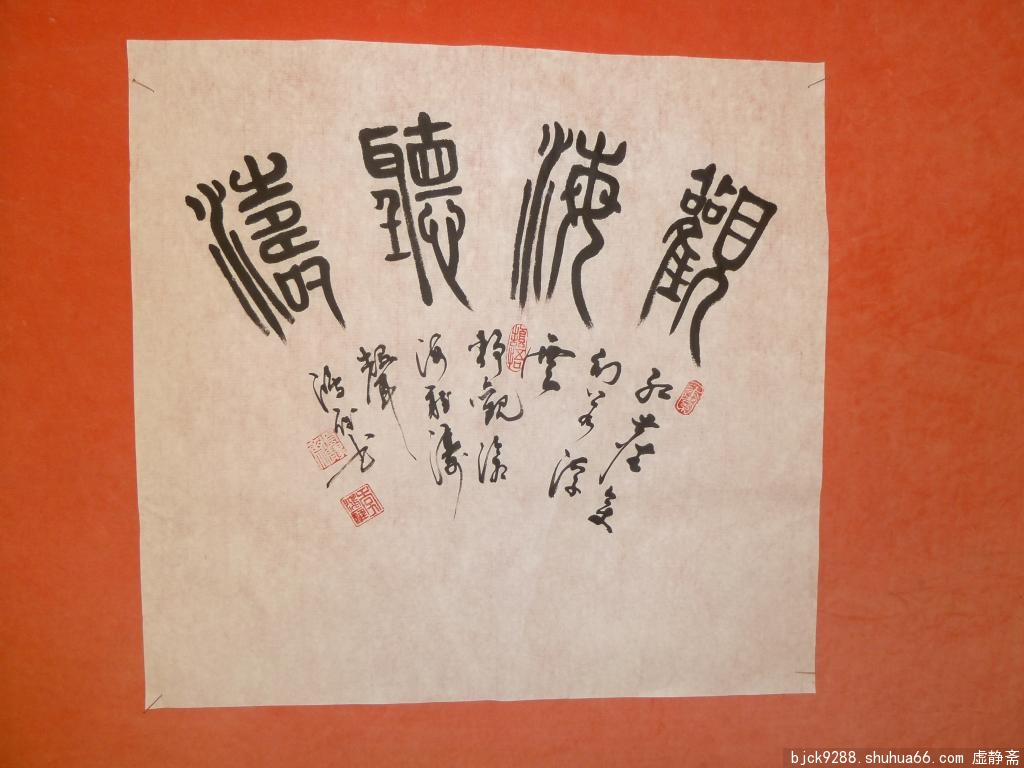 觀海聽濤
紅塵变
幻若浮
雲
靜觀滄
海聽濤
聲
bjck9288.shuhua66.com 虚静斋